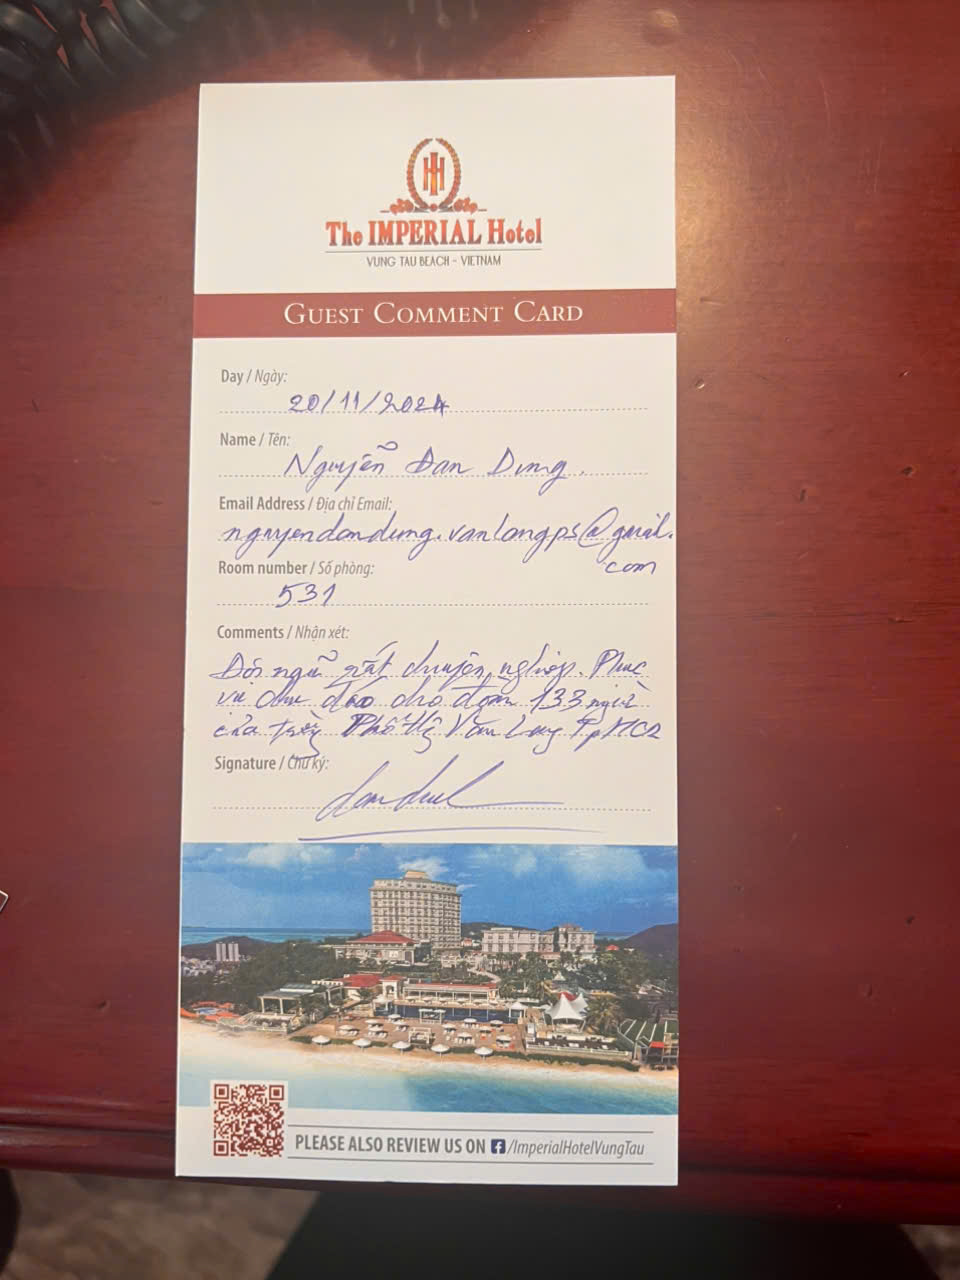 The IMPERIAL Hotel
VUNG TAU BEACH - VIETNAM
GUEST COMMENT CARD
Day / Ngày:
20/11/2024
Name / Tên:
Nguyễn Đan Dung.
Email Address / Địa chỉ Email:
nguyendandung.vanlangps@gmail.
com
Room number / Số phòng:
531
Comments / Nhận xét:
Đội ngũ rất chuyên nghiệp. Phục
vụ chu đáo cho đoàn 133 người
của trường Phổ Văn Lang Tp
Signature / Chữ ký:
PLEASE ALSO REVIEW US ON f/ImperialHotelVungTau